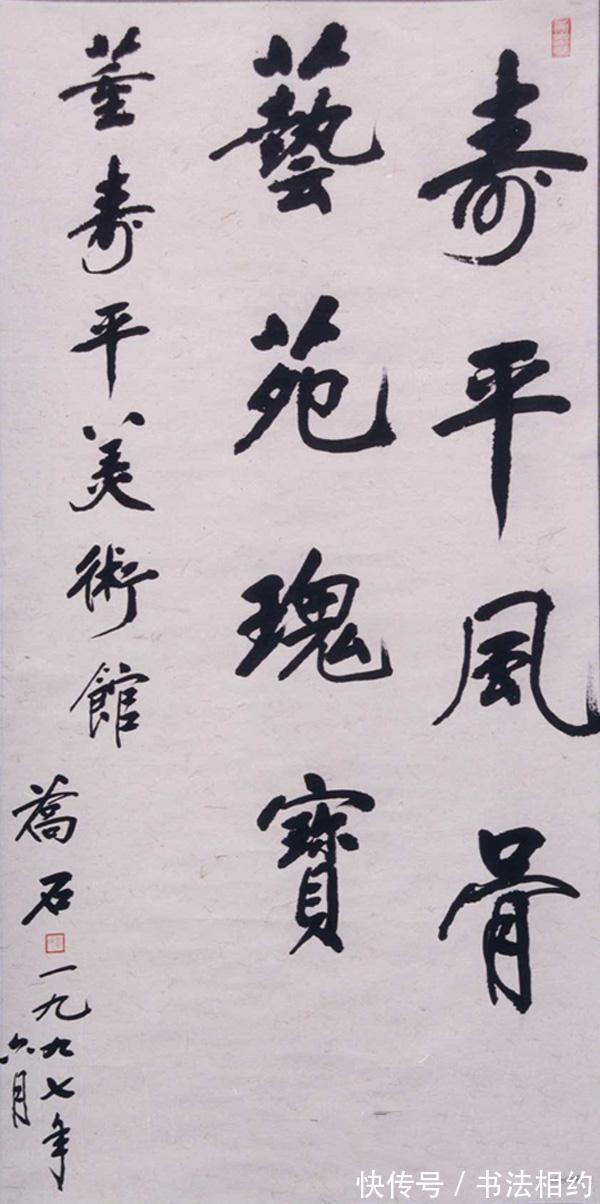 寿平風骨
藝苑瑰寶
董寿平美術館
喬石
一九九七年
六月
快传号 / 书法相约